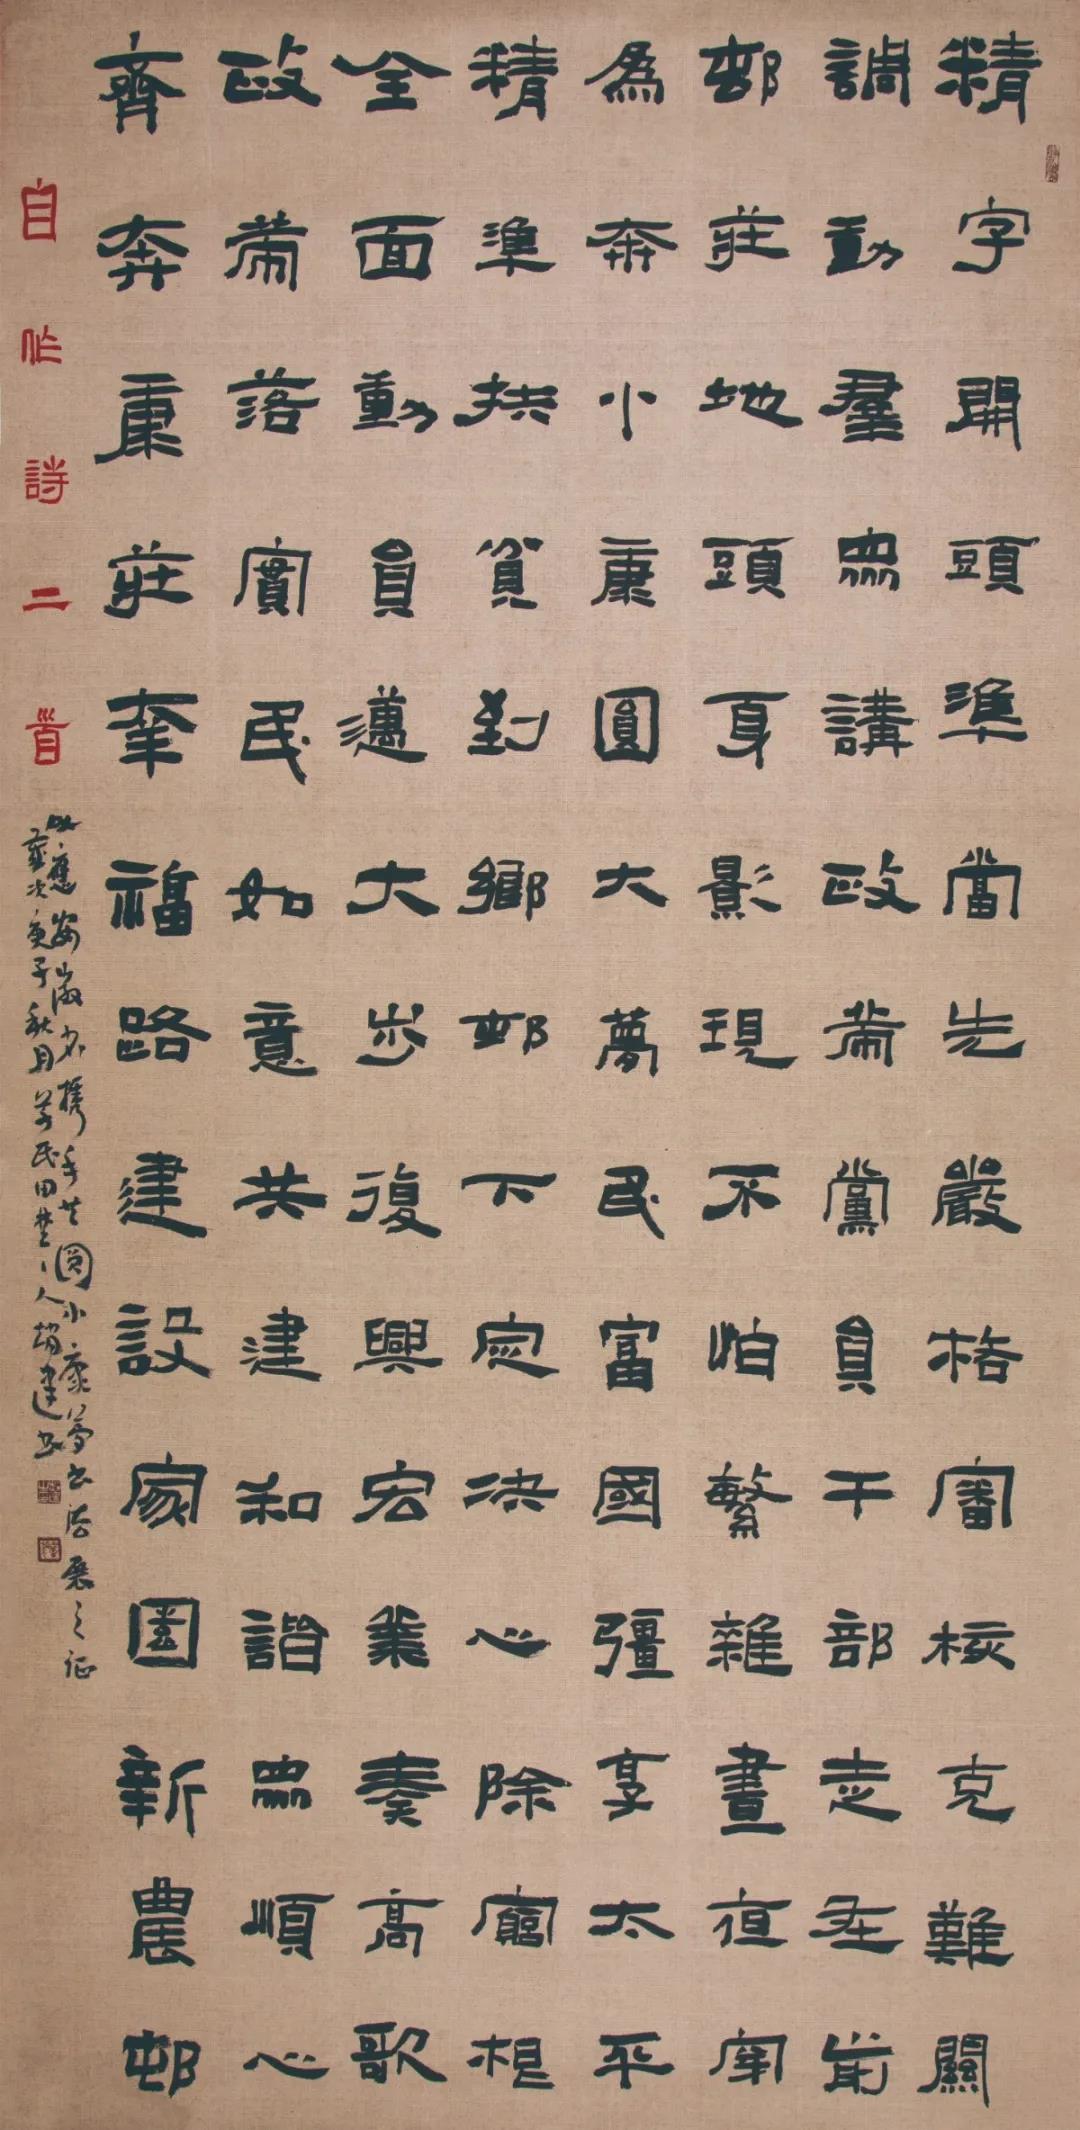 精字開頭準當先嚴格審核克難關
調動羣眾講政策黨員干部走在前
邨莊地頭身影現不怕繁雜晝夜穿
為奔小康圓大夢民富國彊享太平
精準扶貧到鄉邨下定決心除窮根
全面動員邁大步復興宏業奏高歌
政策落實民如意共建和諧眾順心
齊奔康莊幸福路建設家園新農邨
自作詩二首
應安徽省攜手共圓小康夢書法展之征
歲次庚子秋月民田楚人趙建書